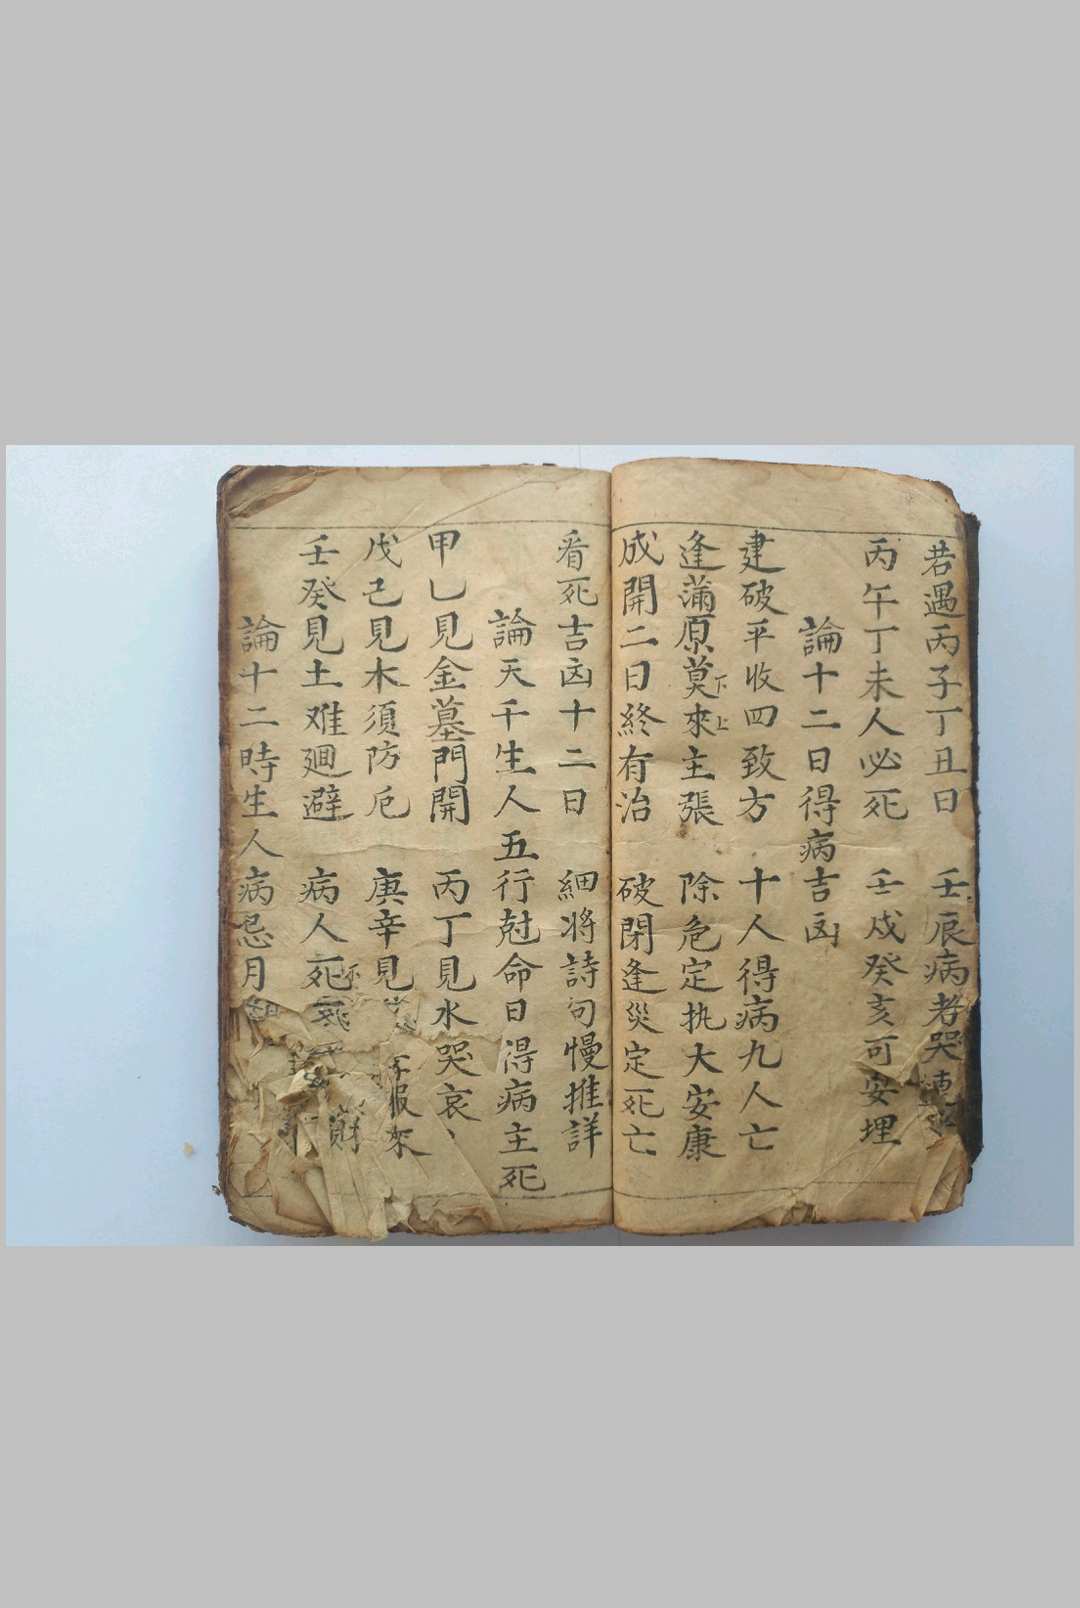 若遇丙子丁丑日 壬辰病者哭連
丙午丁未人必死 壬戍癸亥可安埋
論十二日得病吉凶
建破平收四致方 十人得病九人亡
逢滿原莫來主張 除危定执大安康
下上
成開二日終有治 破閉逢災定死亡
看死吉凶十二日 細将詩句慢推詳
論天千生人五行尅命日得病主死
甲乚見金墓門開 丙丁見水哭哀哀
戊己見木須防厄 庚辛見
壬癸見土难廻避 病人死
論十二時生人病忌月